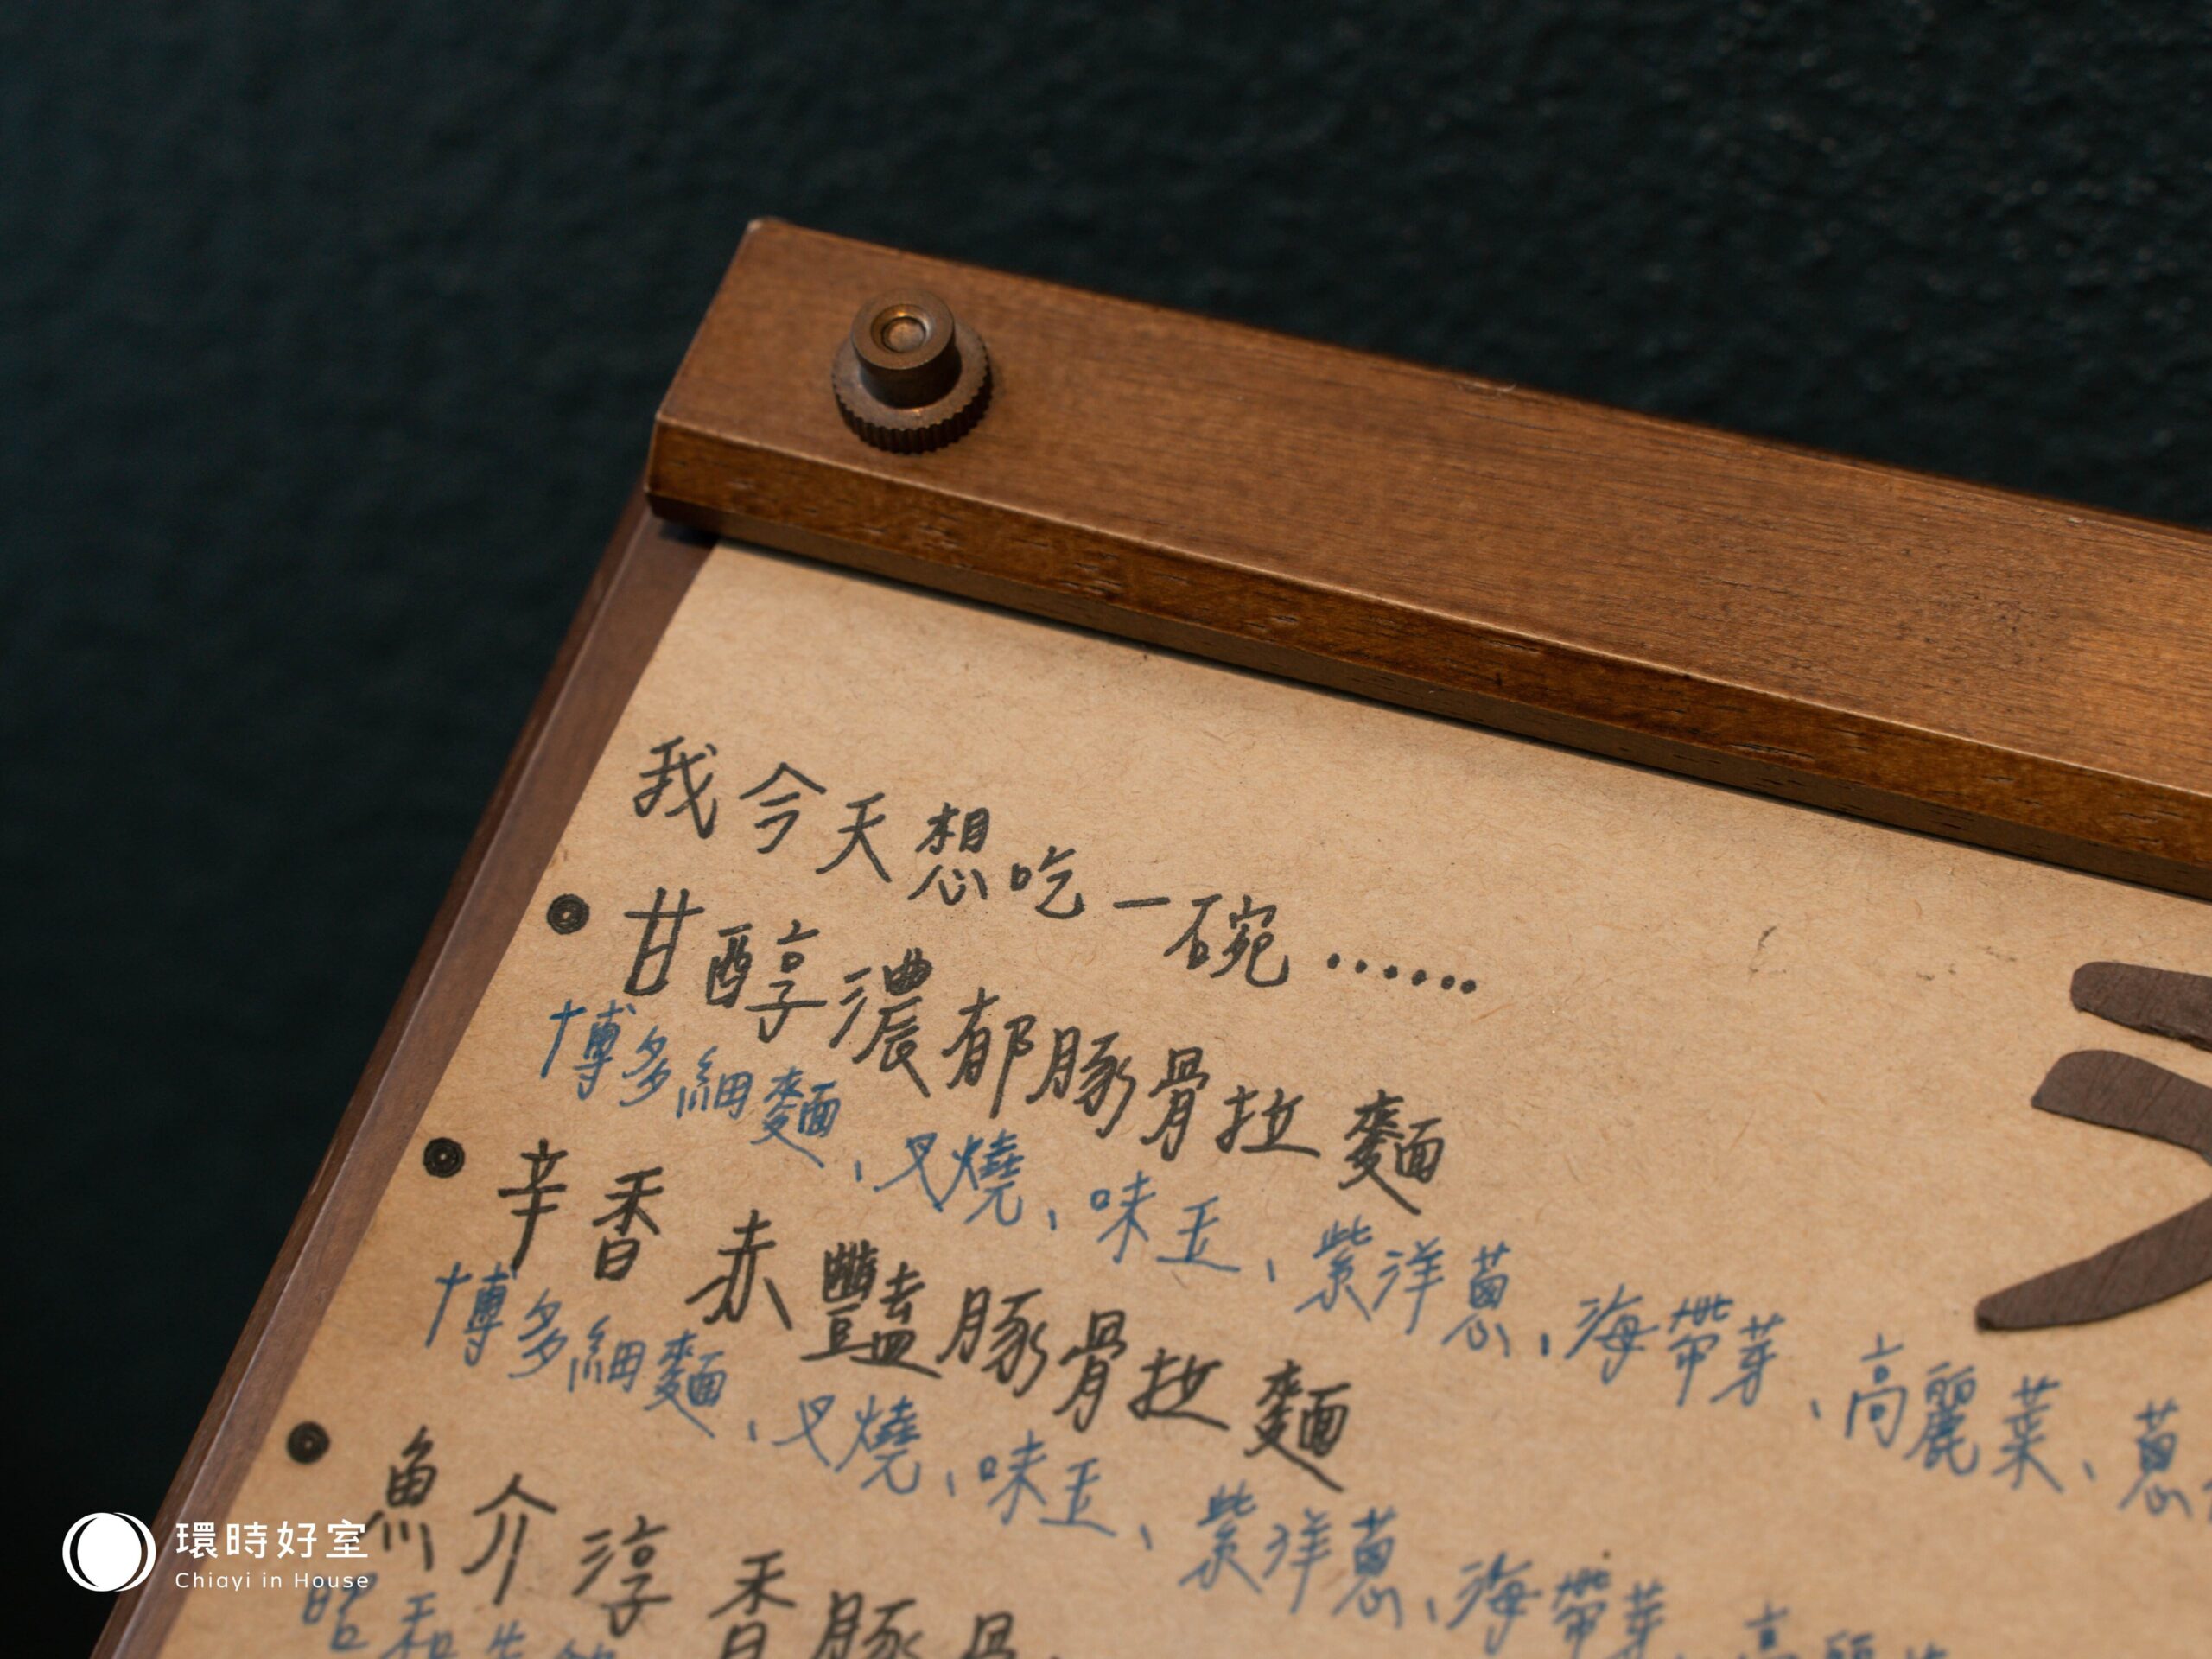 我今天想吃一碗……
甘醇濃郁豚骨拉麵
博多細麵、叉燒、味玉、紫洋蔥、海帶芽、高麗菜、蔥
辛香赤豔豚骨拉麵
博多細麵、叉燒、味玉、紫洋蔥、海帶芽、高麗
魚介淳香豚骨
環時好室
Chiayi in House